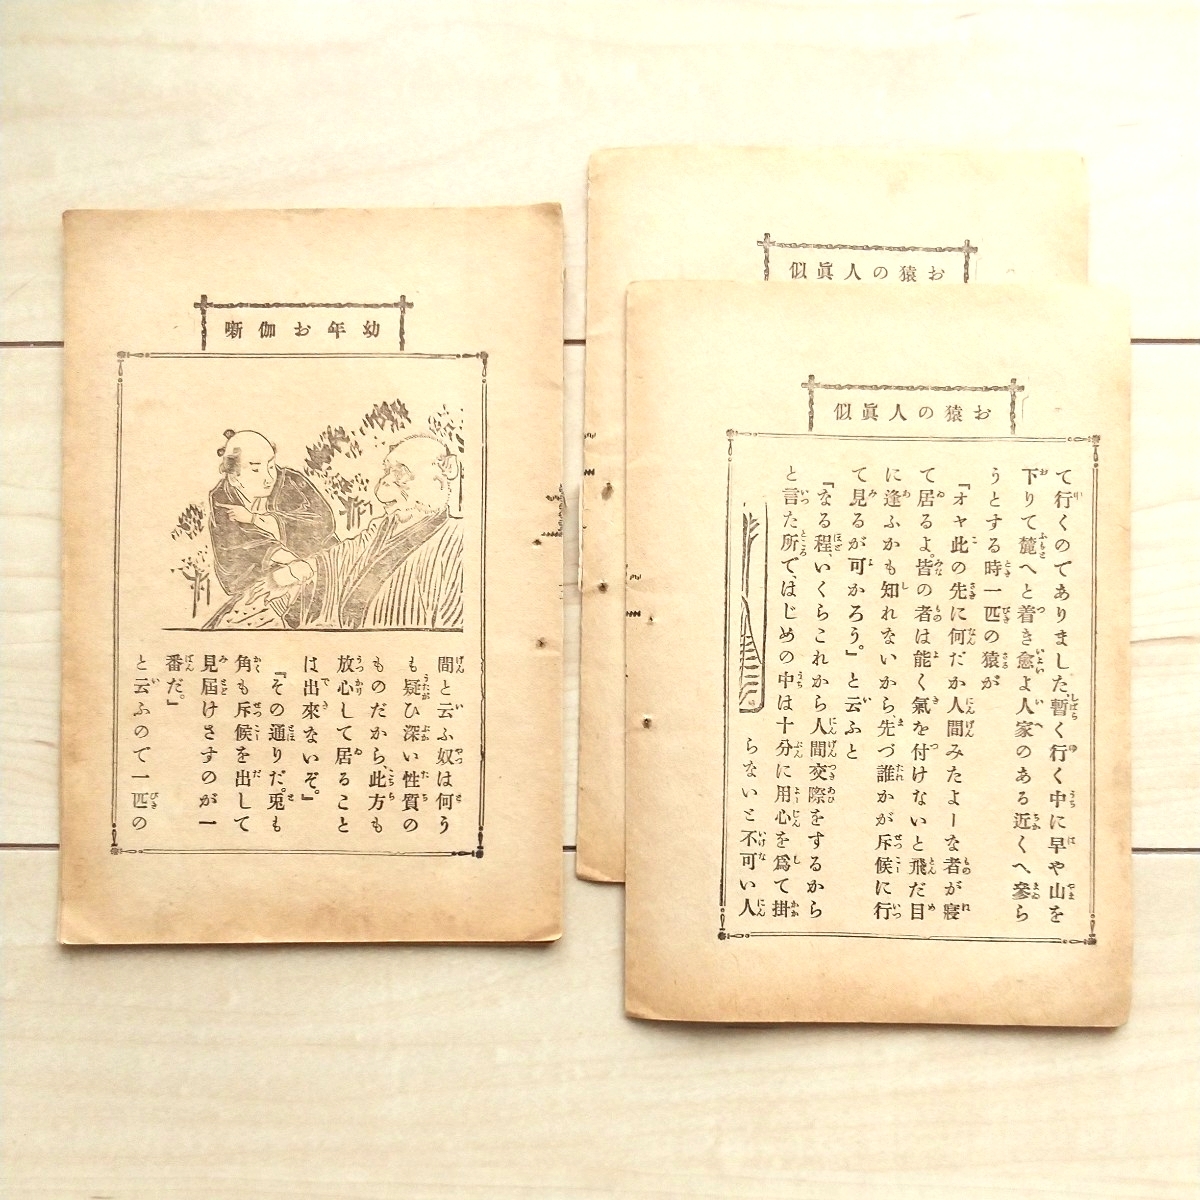 お猿の人眞似
お猿の人眞似
て行くのでありました、暫く行く中に早や山を
下りて麓へと着き愈よ人家のある近くへ參ら
うとする時一匹の猿が
『オヤ此の先に何だか人間みたよーな者が寢
て居るよ。皆の者は能く氣を付けないと飛だ目
に逢ふかも知れないから先づ誰かが斥候に行
て見るが可かろう。』と云ふと
『なる程、いくらこれから人間交際をするから
と言た所で、はじめの中は十分に用心を爲て掛
らないと不可い人
幼年お伽噺
間と云ふ奴は何う
も疑ひ深い性質の
ものだから、此方も
放心して居ること
は出來ないぞ。』
『その通りだ。兎も
角も斥候を出して
見屆けさすのが一
番だ。』
と云ふので一匹の